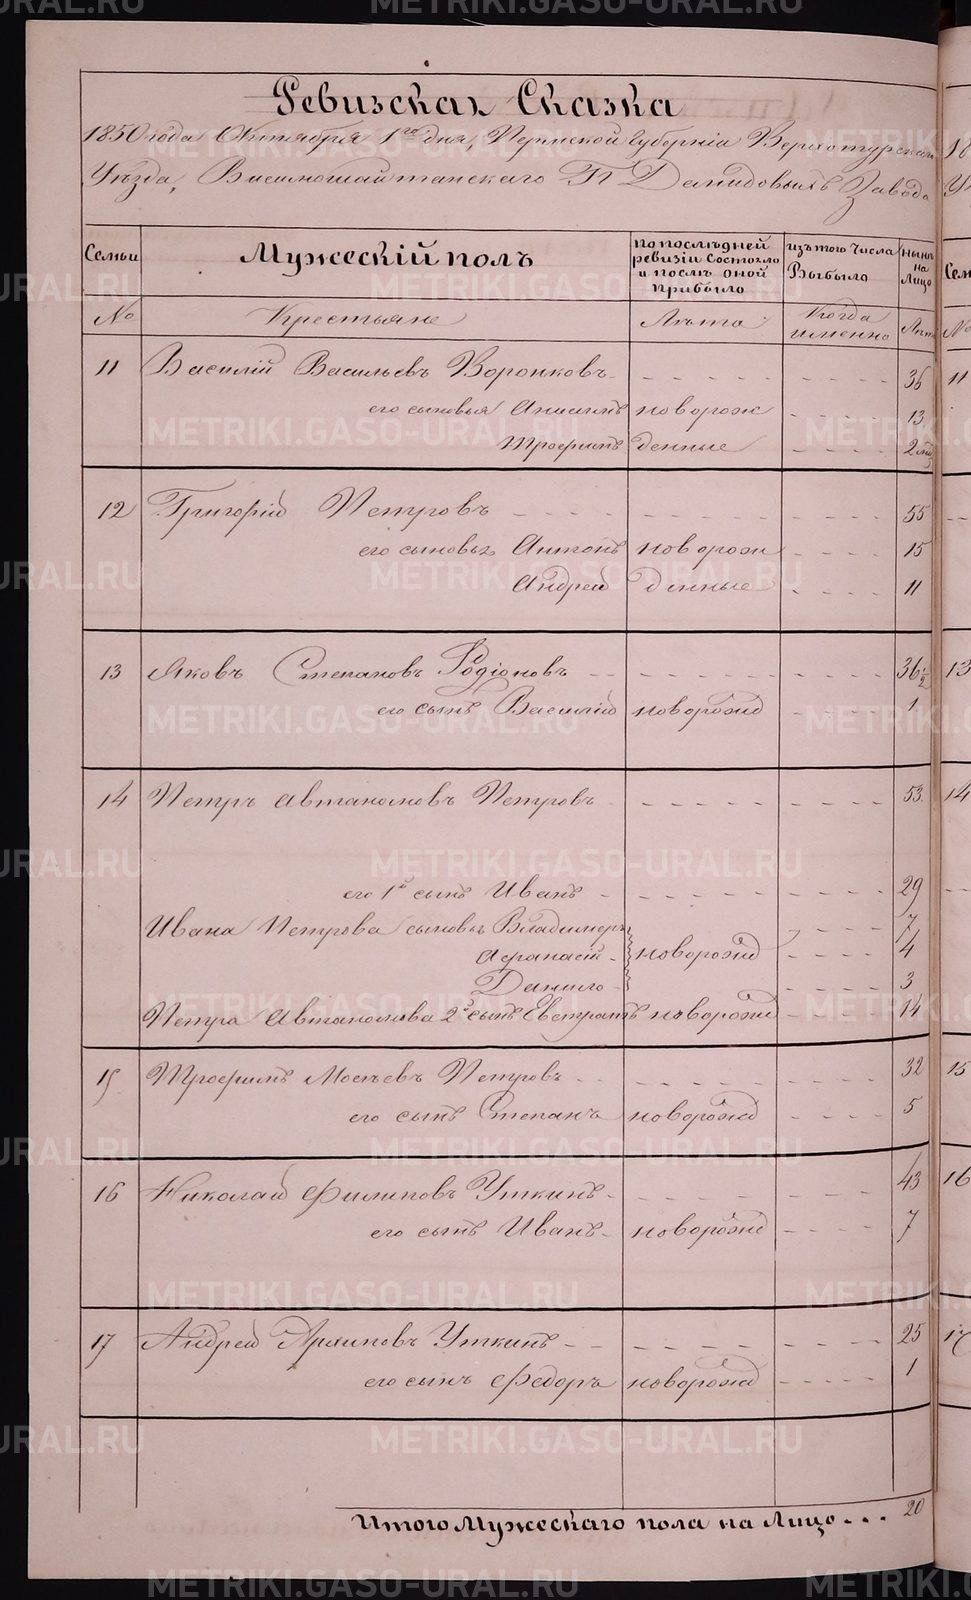 Ревизская Сказка
1850 года Октября 1го дня, Пермской Губерніи Верхотурскаго
Уѣзда, Висимошайтанскаго П Демидовыхъ Завода
Семьи Мужескій полъ по послѣдней ревизіи Состояло и послѣ оной прибыло изъ того Числа Выбыло нынѣ на Лицо
№ Крестьяне Лѣта Когда именно Лѣта
11 Василій Васильевъ Воронковъ 36
его сыновья Анисимъ новорож 13
Трофимъ денные
12 Григорій Петровъ 55
его сыновья Антонъ новорож 15
Андрей денные 11
13 Яковъ Степановъ Родіоновъ 36 1/2
его сынъ Василій новорожд 1
14 Петръ Автаномовъ Петровъ 53
его 1й сынъ Иванъ 29
Ивана Петрова сыновья Владимеръ 7
Афанасій новорожд 4
Данило 3
Петра Автаномова 2й сынъ Евстратъ новорожд 14
15 Трофимъ Мосѣевъ Петровъ 32
его сынъ Степанъ новорожд 5
16 Николай Филиповъ Уткинъ 43
его сынъ Иванъ новорожд 7
17 Андрей Архиповъ Уткинъ 25
его сынъ Федоръ новорожд 1
Итого Мужескаго пола на Лицо 20
11
13
14
15
16
17
METRIKI.GASO-URAL.RU